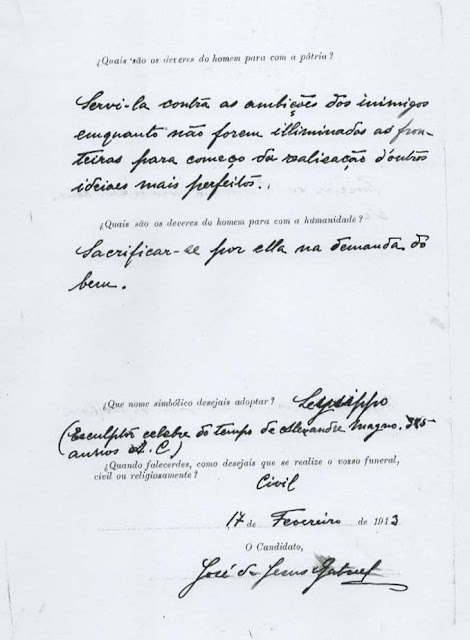 ¿Quais são os deveres do homem para com a pátria?
Servi-la contra as ambições dos inimigos
emquanto não forem illiminadas as fron-
teiras para começo da realisação d'outros
ideiaes mais perfeitos..
¿Quais são os deveres do homem para com a humanidade?
Sacrificar-se por ella na demanda do
bem.
¿Que nome simbólico desejais adoptar? Leysippo
(Esculptor celebre do tempo de Alexandre Magno,
annos A. C)
¿Quando falecerdes, como desejais que se realize o vosso funeral,
civil ou religiosamente?
Civil
17 de Fevereiro de 1913
O Candidato,
José de Jesus Gabriel